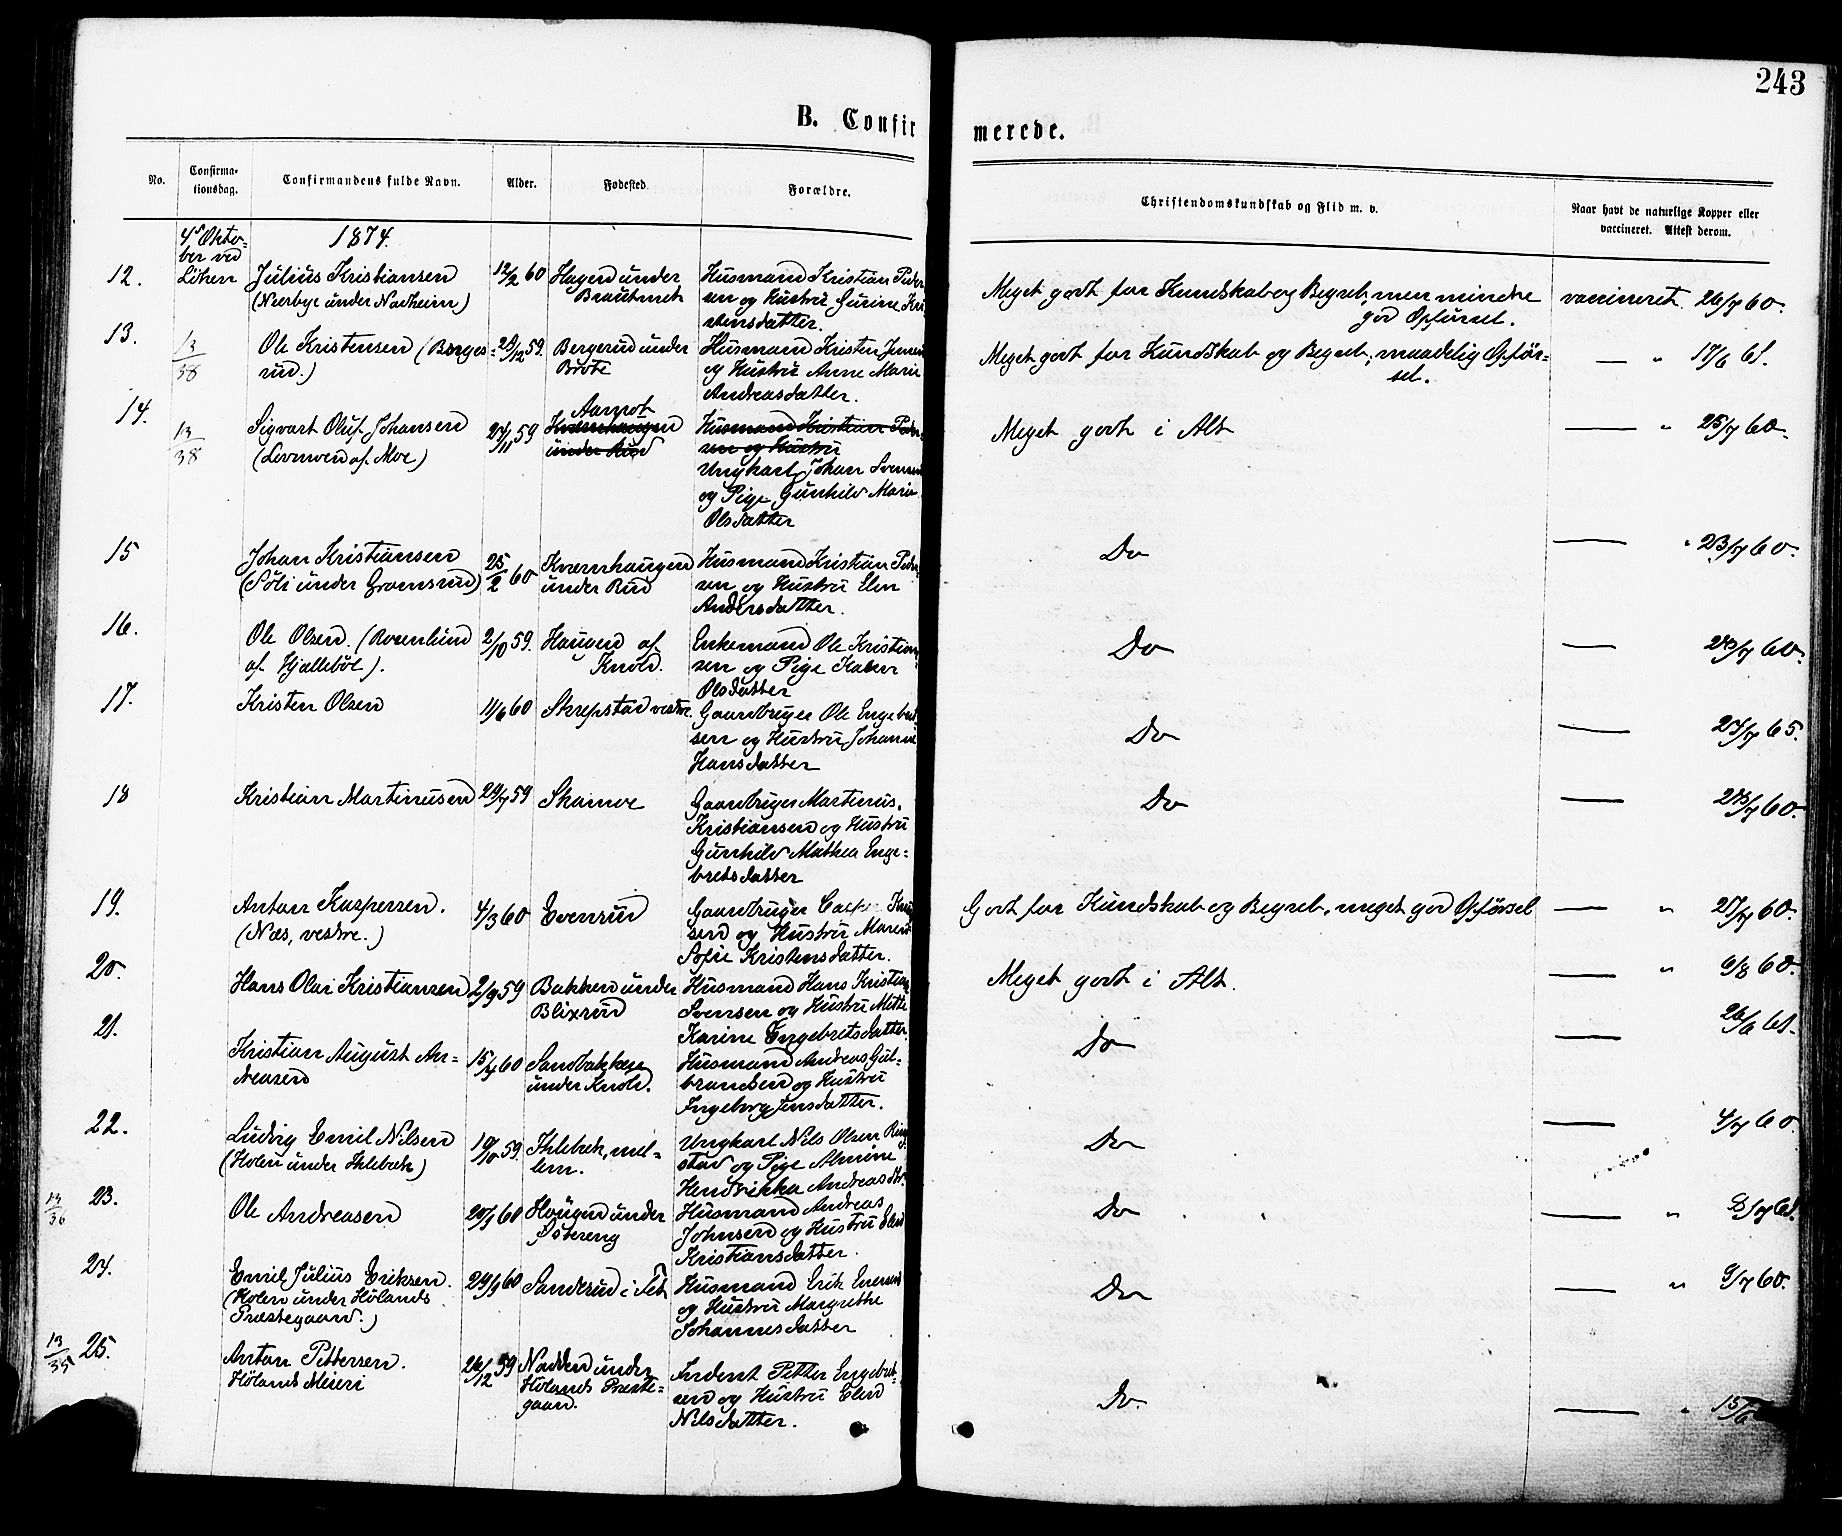 243
B. Confir
merede.
No.
Confirma-
tionsdag.
Confirmandens fulde Navn.
Alder.
Fødested.
Forældre.
Christendomskundskab og Flid m. v.
Naar havt de naturlige Kopper eller
vaccineret. Attest derom.
4de Okto-
ber ved
Löken
1874.
12.
Julius Kristiansen
(Nærbye under Nadheim)
12/2 60
Hagen under
Braatnet
Husmand Kristian Peder
sen og Hustru Gurine Kri
stensdatter.
Meget godt for Kundskab og Begreb, men mindre
god Opførsel.
vaccineret 26/7 60.
13.
13/38
Ole Kristensen (Berge-
rud.)
29/12 59.
Bergerud under
Bröte
Husmand Kristen Jensen
og Hustru Anne Marie
Andreasdatter.
Meget godt for Kundskab og Begreb, maadelig Opför-
sel.
— " 17/6 61.
14.
13/38
Sigvart Oluf Johansen
(Levnwen af Moe)
27/11 59
Aamot
Kværnhaugen
under Rud
Husmand Kristian Peder-
sen og Hustru
Ungkarl Johan Svensen
og Pige Gunhild Marie
Olsdatter
Meget godt i Alt
— " 25/7 60.
15
Johan Kristiansen
(Söli under Gromsrud)
25/2 60
Kværnhaugen
under Rud
Husmand Kristian Peder-
sen og Hustru Elen
Andersdatter.
Do
— " 23/7 60.
16.
Ole Olsen. (Rosenlund
af Hjallebøl).
2/10 59.
Haugen af
Knold.
Enkemand Ole Kristian-
sen og Pige Karen
Olsdatter
Do
— 23/7 60.
17.
Kristen Olsen
11/6 60
Skrepstad vestre.
Gaardbruger Ole Engebret
sen og Hustru Johanne
Hansdatter
Do
— 24/7 65.
18
Kristian Martinusen
29/7 59
Skamoe
Gaardbruger Martinus
Kristiansen og Hustru
Gunhild Mathea Enge-
bretsdatter
Do
— 23/7 60.
19.
Anton Kaspersen.
(Næs, vestre.)
4/3 60
Evenrud
Gaardbruger Casper Knu
sen og Hustru Maren
Sofie Kristensdatter.
Godt for Kundskab og Begreb, meget god Opførsel
— " 27/7 60.
20.
Hans Olai Kristiansen
2/9 59
Bakken under
Blixrud
Husmand Hans Kristian
Svensen og Hustru Mette
Karine Engebretsdatter
Meget godt i Alt.
— " 6/8 60.
21.
Kristian August An-
dreasen
15/4 60
Sandbakken
under Knold.
Husmand Andreas Gul-
brandsen og Hustru
Ingeborg Jensdatter.
Do
— 26/6 61.
22.
Ludvig Emil Nilsen
(Holen under Ihlebæk)
19/10 59.
Ihlebæk, mel-
lem.
Ungkarl Nils Olsen Ring
stad og Pige Almine
Hendrikka Andreasdtr.
Do
— 4/7 60.
13/36
23.
Ole Andreasen
20/1 60
Haugen under
Östereng
Husmand Andreas
Johnsen og Hustru Elen
Kristiansdatter.
Do
— " 2/7 61.
24.
Emil Julius Eriksen.
(Holen under Hölands
Præstegaard.)
29/1 60
Sanderud i Fet
Husmand Erik Evensen
og Hustru Margrethe
Johannesdatter
Do
— " 9/7 60.
13/35
25.
Anton Pettersen.
Hölands Meieri
26/12 59
Nadden under
Hölands Præste-
gaard.
Inderst Petter Engebret-
sen og Hustru Elen
Nilsdatter.
Do.
— " 15/6